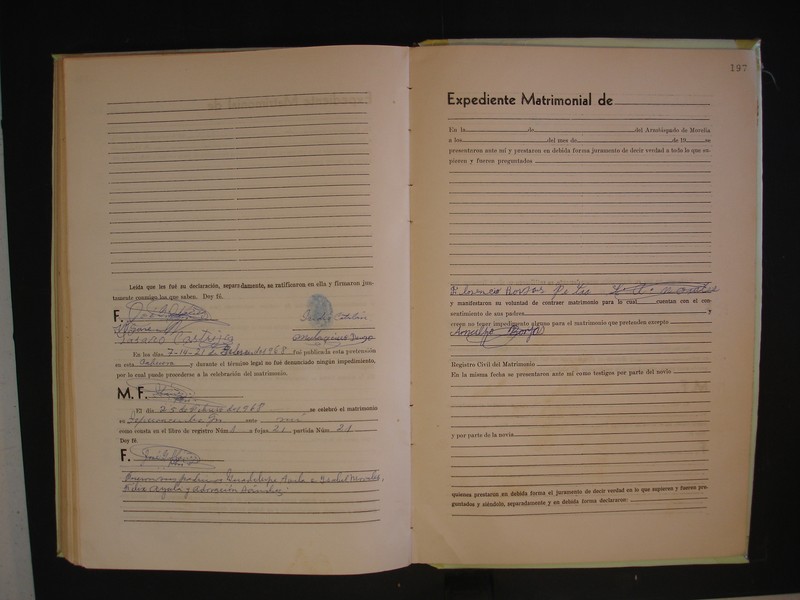 Leída que les fué su declaración, separadamente, se ratificaron en ella y firmaron jun-
tamente conmigo los que saben. Doy fé.
F.
Lázaro Castrejón
En los días 7-14-21 de Febrero de 1968 fué publicada esta pretensión
en esta y durante el término legal no fué denunciado ningún impedimento,
por lo cual puede procederse a la celebración del matrimonio.
M. F.
El día 25 de Febrero de 1968 se celebró el matrimonio
en ante
como consta en el libro de registro Núm a fojas 21 partida Núm. 21
Doy fé
F. José
Fueron sus padrinos Guadalupe Ayala e Isabel Morales,
Felix Ayala y Adoración Sánchez.
197
Expediente Matrimonial de
En la de del Arzobispado de Morelia
a los del mes de de 19 se
presentaron ante mí y prestaron en debida forma juramento de decir verdad a todo lo que su-
pieren y fueren preguntados
y manifestaron su voluntad de contraer matrimonio para lo cual cuentan con el con-
sentimiento de sus padres y
creen no tener impedimento alguno para el matrimonio que pretenden excepto
Arnulfo Borja
Registro Civil del Matrimonio
En la misma fecha se presentaron ante mí como testigos por parte del novio
y por parte de la novia
quienes prestaron en debida forma el juramento de decir verdad en lo que supieren y fueren pre-
guntados y siéndolo, separadamente y en debida forma declararon: